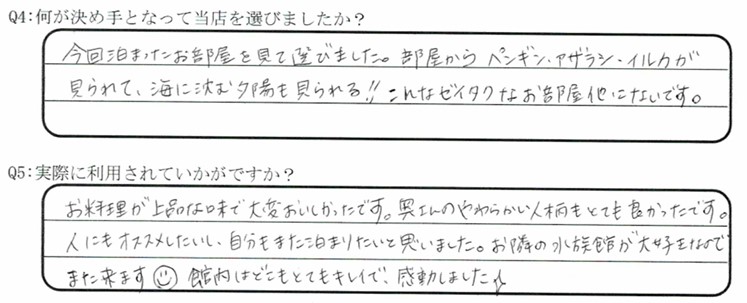 Q4:何が決め手となって当店を選びましたか？
今回泊まったお部屋を見て選びました。部屋から ペンギン・アザラシ・イルカが
見られて、海に沈む夕陽も見られる!! こんなゼイタクなお部屋他にないです。
Q5:実際に利用されていかがですか？
お料理が上品な味で大変おいしかったです。奥さんのやわらかい人柄もとても良かったです。
人にもオススメしたいし、自分もまた泊まりたいと思いました。お隣の水族館が大好きなので
また来ます☺ 館内はどこもとてもキレイで、感動しました☆